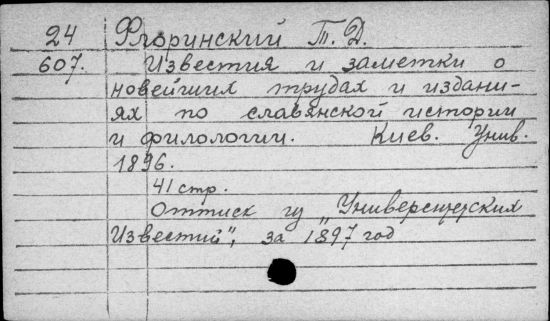 24 Флоринский Т. Д.
607. Известия и заметки о
новейших трудах и издани-
ях по славянской истории
и филологии. Киев. Унив.
1896.
41 стр.
Оттиск из „Университетских
Известий", за 1897 год